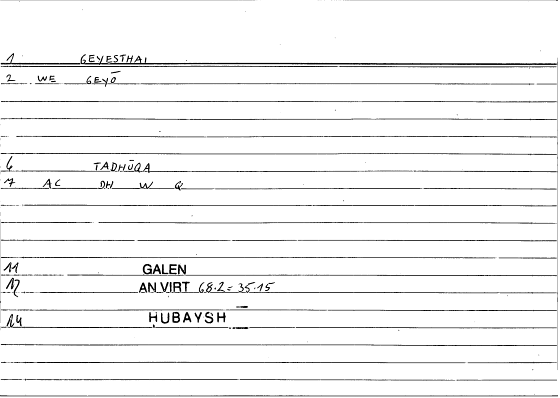 1 GEYESTHAI
2 WE GEYŌ
6 TADHŪQA
7 AC DH W Q
11 GALEN
12 AN VIRT 68.2 = 35.15
14 ḤUBAYSH